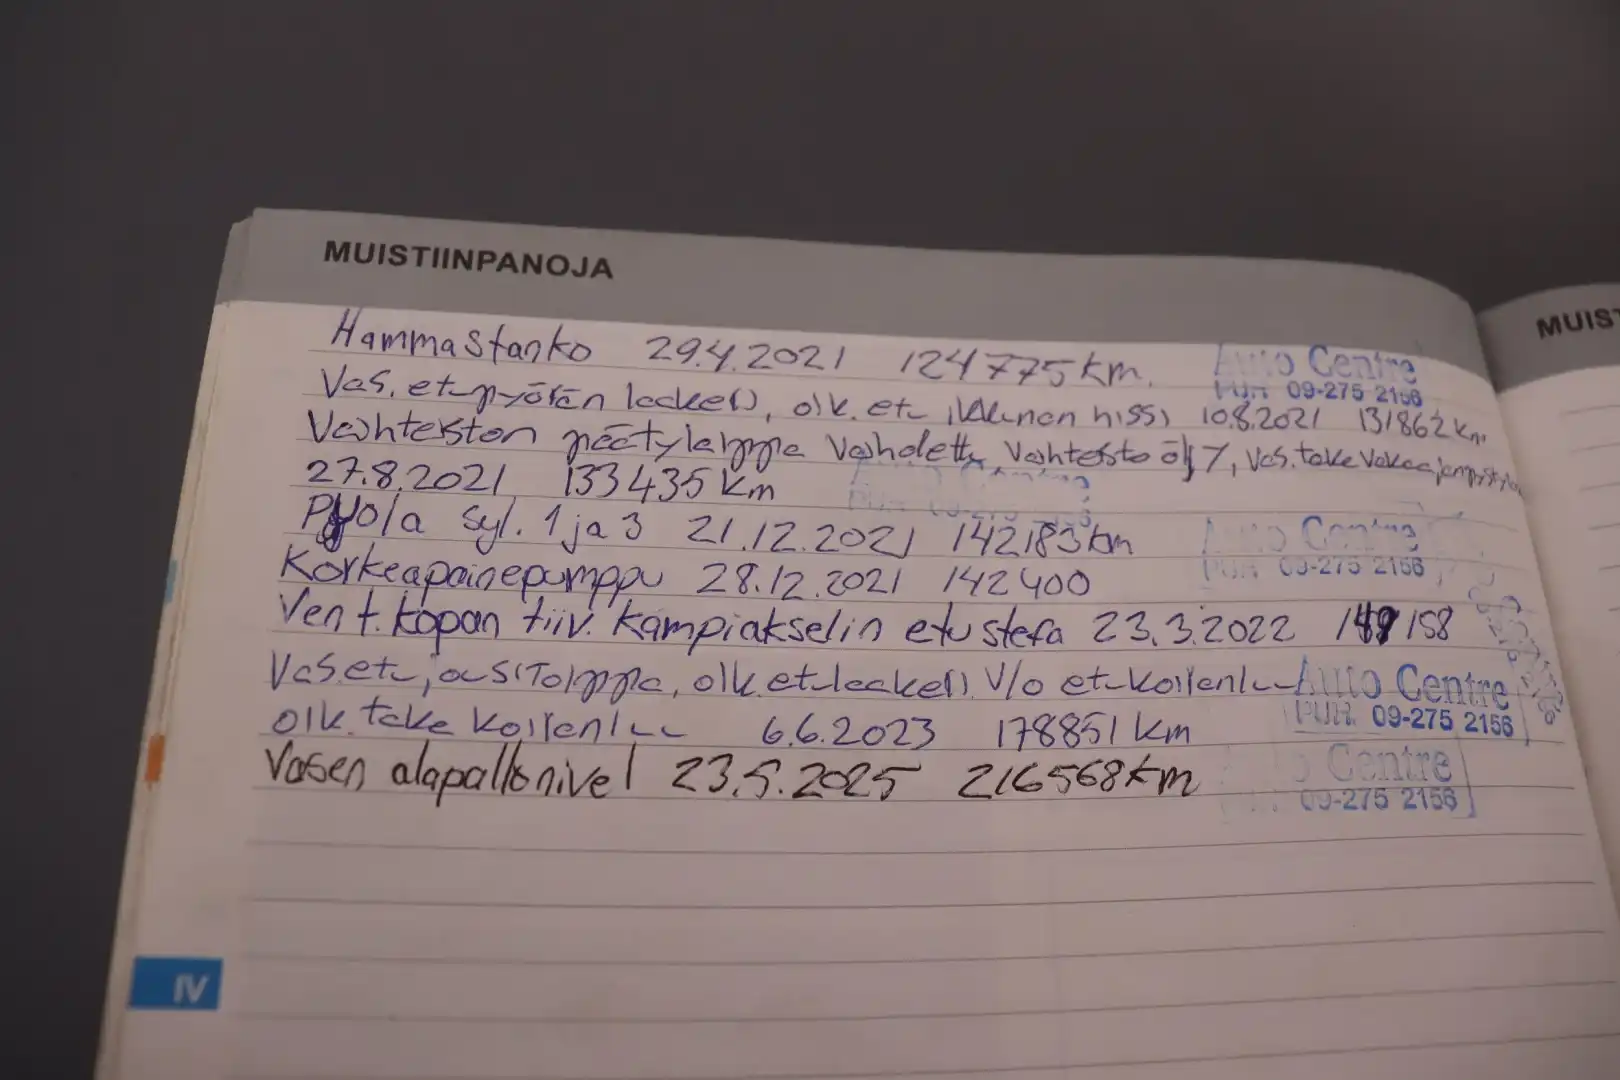 MUISTIINPANOJA
MUIS
Hammastanko 29.4.2021 124775 km.
Auto Centre
PUH 09-275 2156
Vas. et-pyörän laakeri, oik. et- ikkunan hissi 10.8.2021 131862 km
Vaihteiston päätylappa vaihdettu, vaihteisto öljy, vas. taka vakaaj
27.8.2021 133435 km
Puola syl. 1 ja 3 21.12.2021 142183 km
Auto Centre
PUH 09-275 2156
Korkeapainepumppu 28.12.2021 142400
Vent. kopan tiiv. kampiakselin etu stefa 23.3.2022 158
Vas. etu jousitolppa, oik. et-laakeri V/o et-koiranluu
Auto Centre
PUH. 09-275 2156
oik. taka koiranluu 6.6.2023 178851 km
Vasen alapallonivel 23.5.2025 216568 km
Centre
09-275 2156
IV